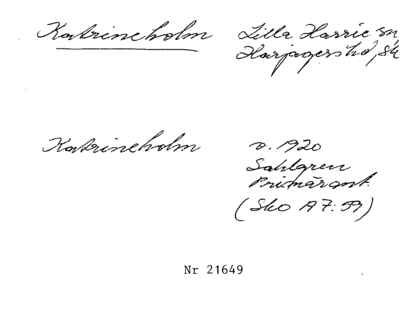 Katrineholm Lilla Harrie sn
Harjagers hd, Sk
Katrineholm v. 1920
Sahlgren
Primäruppt.
(Sko A7:59)
Nr 21649